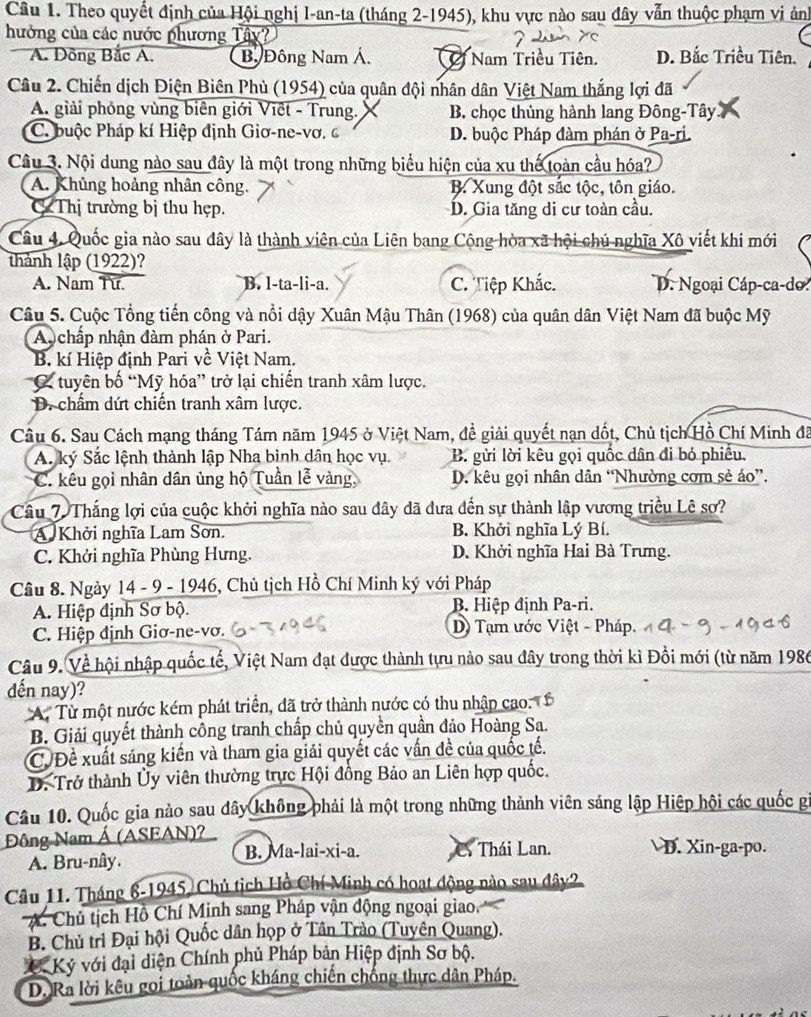 Câu 1. Theo quyết định của Hội nghị I-an-ta (tháng 2-1945), khu vực nào sau đây vẫn thuộc phạm vi ản
hưởng của các nước phương Tây?
A. Đông Bắc Á. B. Đông Nam Á. C. Nam Triều Tiên. D. Bắc Triều Tiên.
Câu 2. Chiến dịch Điện Biên Phủ (1954) của quân đội nhân dân Việt Nam thắng lợi đã
A. giải phóng vùng biên giới Việt - Trung. B. chọc thủng hành lang Đông-Tây.
C. buộc Pháp kí Hiệp định Giơ-ne-vơ. D. buộc Pháp đàm phán ở Pa-ri.
Câu 3. Nội dung nào sau đây là một trong những biểu hiện của xu thế toàn cầu hóa?
A. Khủng hoảng nhân công. B. Xung đột sắc tộc, tôn giáo.
C. Thị trường bị thu hẹp. D. Gia tăng di cư toàn cầu.
Câu 4. Quốc gia nào sau đây là thành viên của Liên bang Cộng hòa xã hội chủ nghĩa Xô viết khi mới
thành lập (1922)?
A. Nam Tư. B. I-ta-li-a. C. Tiệp Khắc. D. Ngoại Cáp-ca-dơ.
Câu 5. Cuộc Tổng tiến công và nổi dậy Xuân Mậu Thân (1968) của quân dân Việt Nam đã buộc Mỹ
A. chấp nhận đàm phán ở Pari.
B. kí Hiệp định Pari về Việt Nam.
C. tuyên bố “Mỹ hóa” trở lại chiến tranh xâm lược.
D. chấm dứt chiến tranh xâm lược.
Câu 6. Sau Cách mạng tháng Tám năm 1945 ở Việt Nam, để giải quyết nạn dốt, Chủ tịch Hồ Chí Minh đã
A. ký Sắc lệnh thành lập Nha bình dân học vụ. B. gửi lời kêu gọi quốc dân đi bỏ phiếu.
C. kêu gọi nhân dân ủng hộ Tuần lễ vàng. D. kêu gọi nhân dân “Nhường cơm sẻ áo”.
Câu 7. Thắng lợi của cuộc khởi nghĩa nào sau đây đã đưa đến sự thành lập vương triều Lê sơ?
A. Khởi nghĩa Lam Sơn. B. Khởi nghĩa Lý Bí.
C. Khởi nghĩa Phùng Hưng. D. Khởi nghĩa Hai Bà Trưng.
Câu 8. Ngày 14 - 9 - 1946, Chủ tịch Hồ Chí Minh ký với Pháp
A. Hiệp định Sơ bộ. B. Hiệp định Pa-ri.
C. Hiệp định Giơ-ne-vơ. 6-3 1946 D. Tạm ước Việt - Pháp. 14 - 9 - 1946
Câu 9. Về hội nhập quốc tế, Việt Nam đạt được thành tựu nào sau đây trong thời kì Đổi mới (từ năm 1986
đến nay)?
A. Từ một nước kém phát triển, đã trở thành nước có thu nhập cao.
B. Giải quyết thành công tranh chấp chủ quyền quần đảo Hoàng Sa.
C. Đề xuất sáng kiến và tham gia giải quyết các vấn đề của quốc tế.
D. Trở thành Ủy viên thường trực Hội đồng Bảo an Liên hợp quốc.
Câu 10. Quốc gia nào sau đây không phải là một trong những thành viên sáng lập Hiệp hội các quốc gi
Đông Nam Á (ASEAN)?
A. Bru-nây. B. Ma-lai-xi-a. C. Thái Lan. D. Xin-ga-po.
Câu 11. Tháng 6-1945, Chủ tịch Hồ Chí Minh có hoạt động nào sau đây?
A. Chủ tịch Hồ Chí Minh sang Pháp vận động ngoại giao.
B. Chủ trì Đại hội Quốc dân họp ở Tân Trào (Tuyên Quang).
C. Ký với đại diện Chính phủ Pháp bản Hiệp định Sơ bộ.
D. Ra lời kêu gọi toàn quốc kháng chiến chống thực dân Pháp.